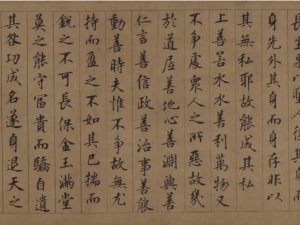 長生
身先外其身而身存非以
其無私耶故能成其私
上善若水水善利萬物又
不爭處衆人之所惡故幾
於道居善地心善淵與善
仁言善信政善治事善能
動善時夫惟不爭故無尤
持而盈之不如其已揣而
銳之不可長保金玉滿堂
莫之能守富貴而驕自遺
其咎功成名遂身退天之